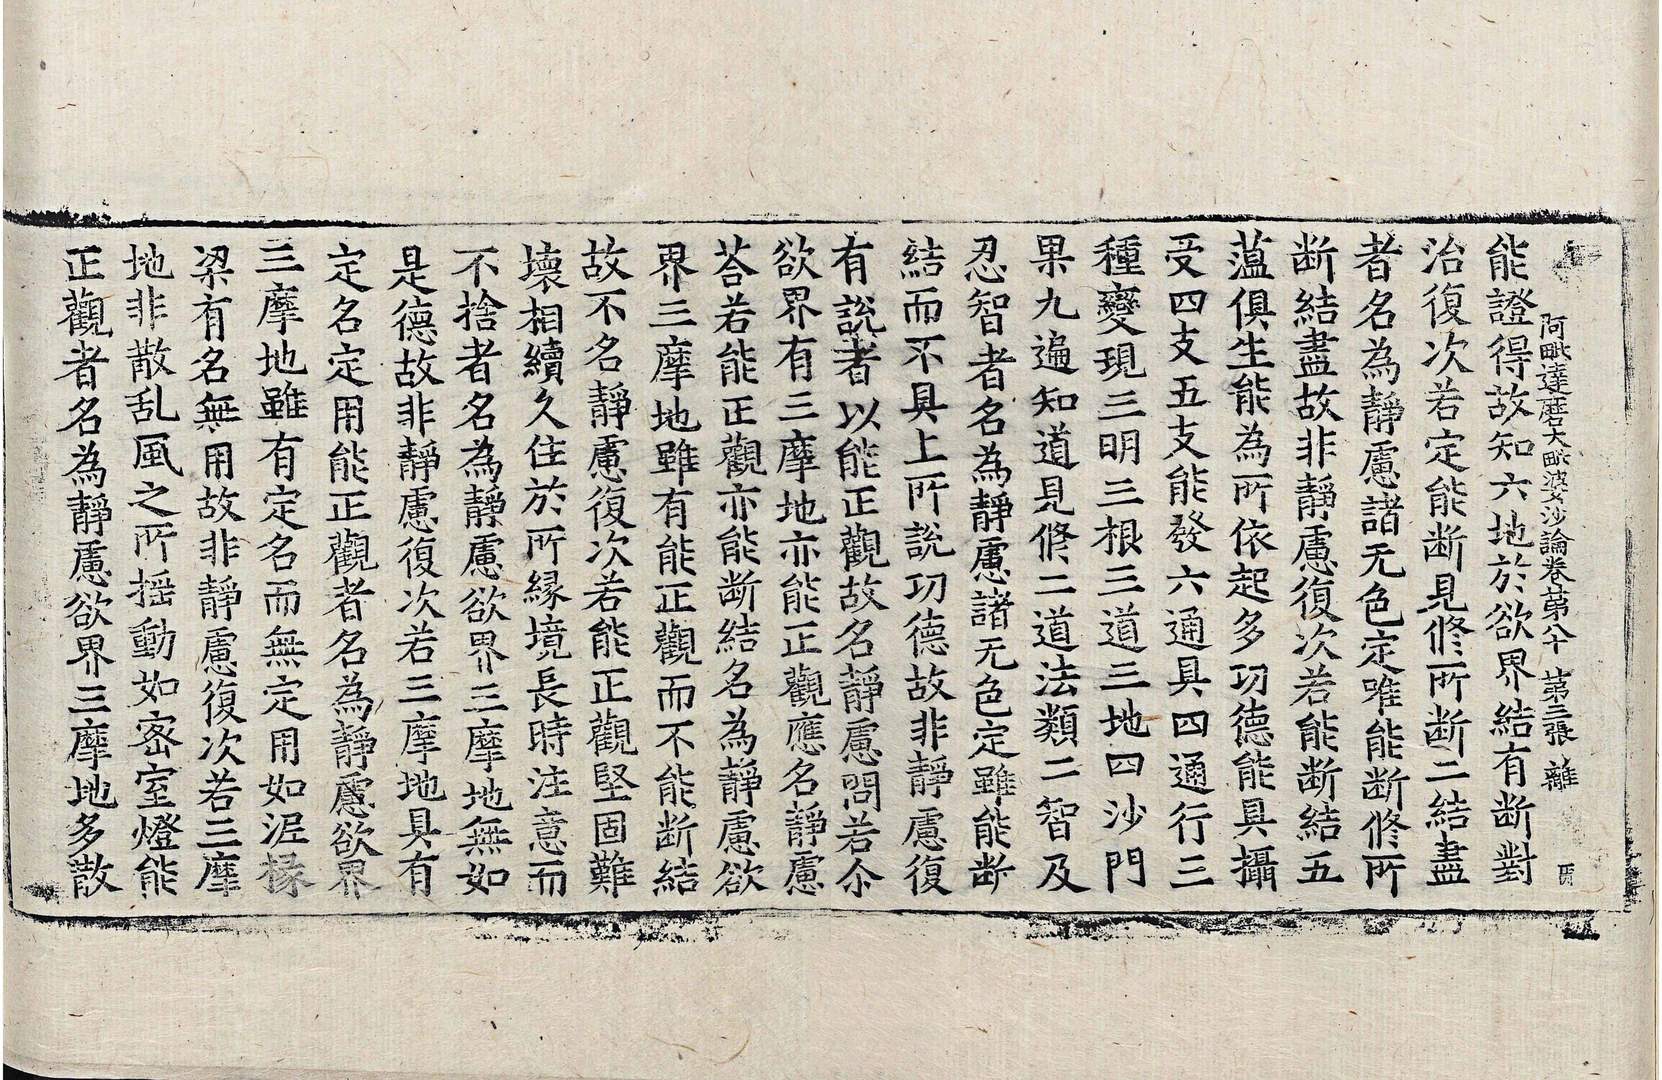 阿毗達磨大毗婆沙論卷第八十　第三張　離
能證得故知六地於欲界結有断對
治復次若定能断見修所断二結盡
者名為靜慮諸无色定唯能断修所
断結盡故非靜慮復次若能断結五
蕰俱生能為所依起多功德能具攝
受四支五支能發六通具四通行三
種變現三明三根三道三地四沙門
果九遍知道見修二道法類二智及
忍智者名為靜慮諸无色定雖能断
結而不具上所說功德故非靜慮復
有說者以能正觀故名靜慮問若尒
欲界有三摩地亦能正觀應名靜慮
荅若能正觀亦能断結名為靜慮欲
界三摩地雖有能正觀而不能断結
故不名靜慮復次若能正觀堅固難
壞相續久住於所縁境長時注意而
不捨者名為靜慮欲界三摩地無如
是德故非靜慮復次若三摩地具有
定名定用能正觀者名為靜慮欲界
三摩地雖有定名而無定用如泥椽
梁有名無用故非靜慮復次若三摩
地非散乱風之所揺動如宻室燈能
正觀者名為靜慮欲界三摩地多散